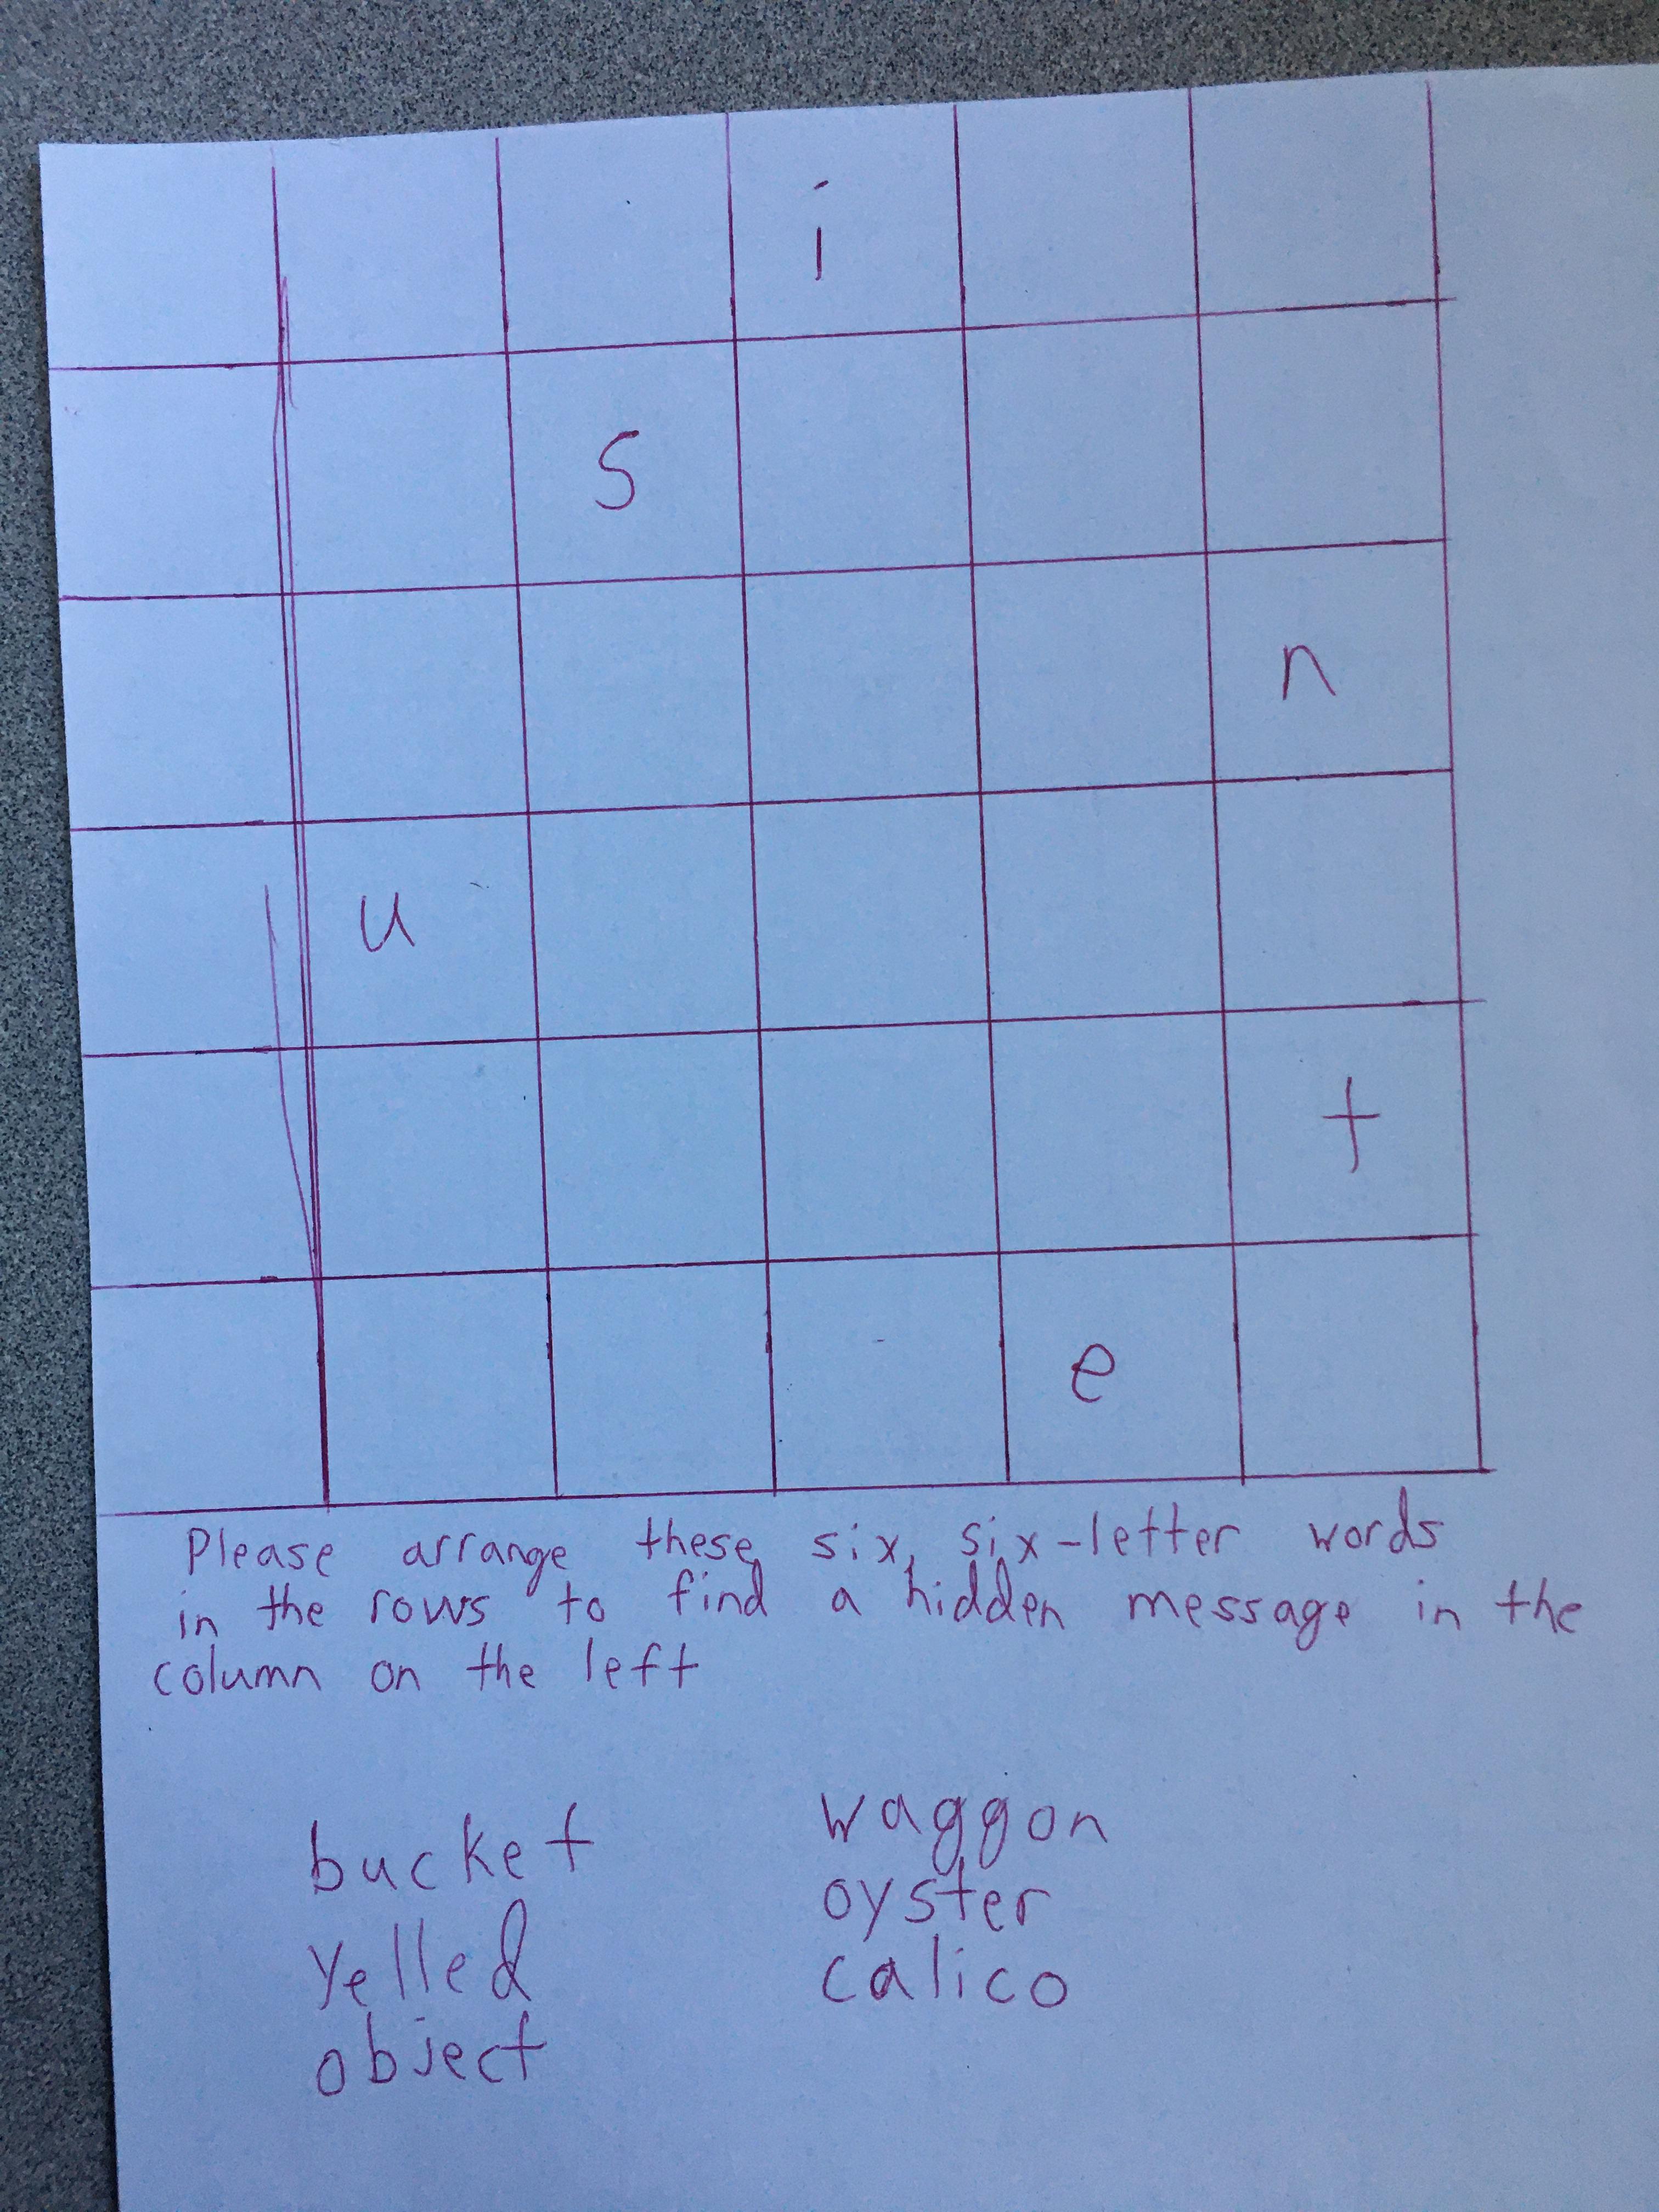 i
s
n
u
t
e
Please arrange these six, six-letter words
in the rows to find a hidden message in the
column on the left
bucket
yelled
object
waggon
oyster
calico